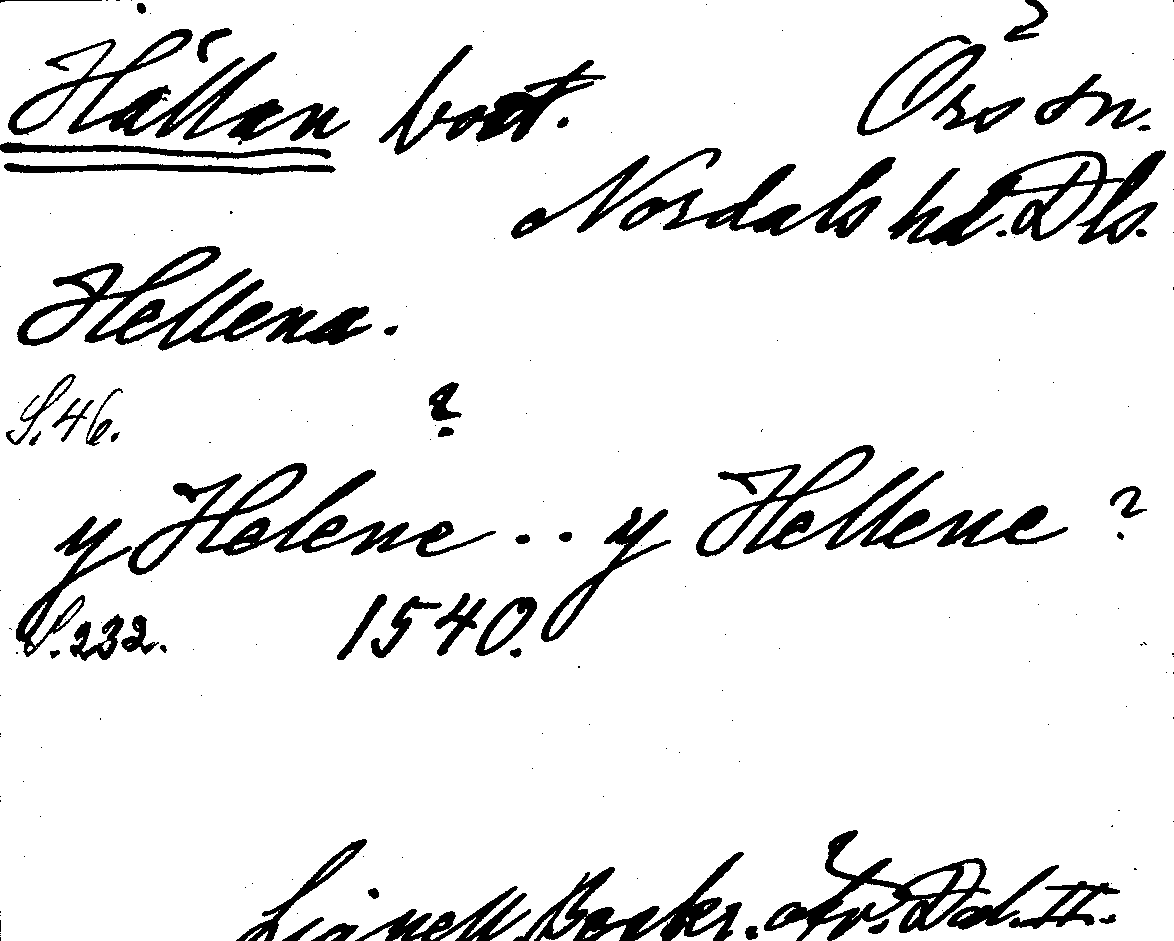 Hällan bort. Örs sn.
Nordals hd. Dls.
Hellena.
S. 46. ?
y Helene .. y Hellene ?
S. 232. 1540.
Lignell, Beskr. öfv. Dal. II.